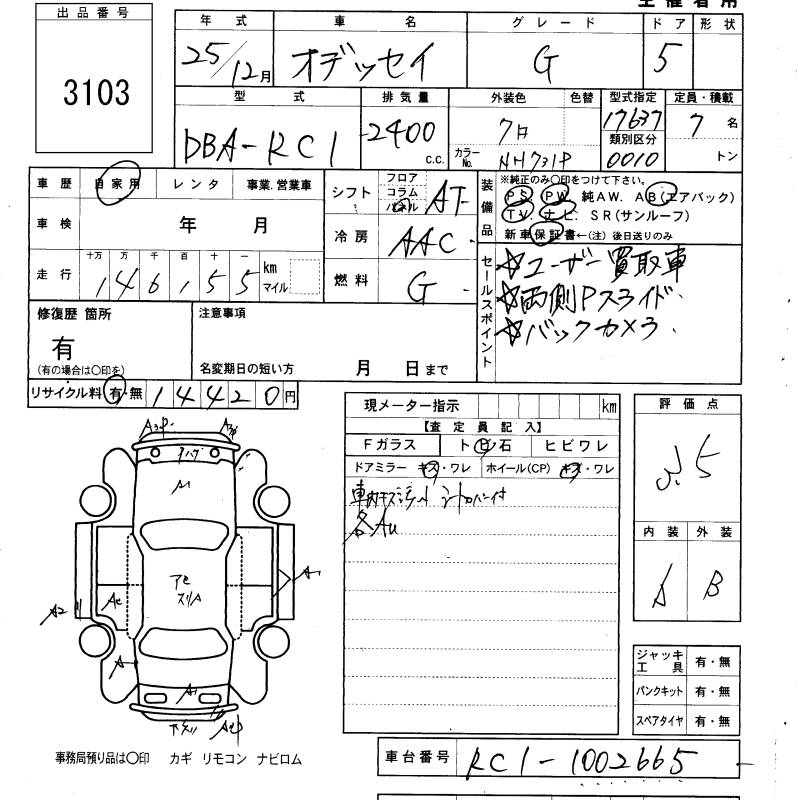 出品番号
3103
年式 車名 グレード ドア 形状
25/12月 オデッセイ G 5
型式 排気量 外装色 色替 型式指定 定員・積載
DBA-RC1 2400 c.c. カラーNo. NH731P 17637 7名
類別区分
0010 トン
車歴 自家用 レンタ 事業.営業車
車検 年 月
走行 十万 万 千 百 十 一
146155 km マイル
シフト フロア コラム パネル AT
冷房 AAC
燃料 G
装備品 ※純正のみ〇印をつけて下さい。
PS PW 純AW. AB(エアバック)
TV ナビ. SR(サンルーフ)
新車保証書←(注)後日送りのみ
セールスポイント
☆ユーザー買取車
☆両側Pスライド
☆バックカメラ
修復歴 箇所
有
(有の場合は〇印を)
注意事項
名変期日の短い方 月 日まで
リサイクル料 有・無 14420円
現メーター指示 km
【査定員記入】
Fガラス トビ石 ヒビワレ
ドアミラー キズ・ワレ ホイール(CP) キズ・ワレ
各AU
評価点
3.5
内装 外装
A B
A2
A1
ジャッキ工具 有・無
パンクキット 有・無
スペアタイヤ 有・無
事務局預り品は〇印 カギ リモコン ナビロム
車台番号 RC1-1002665